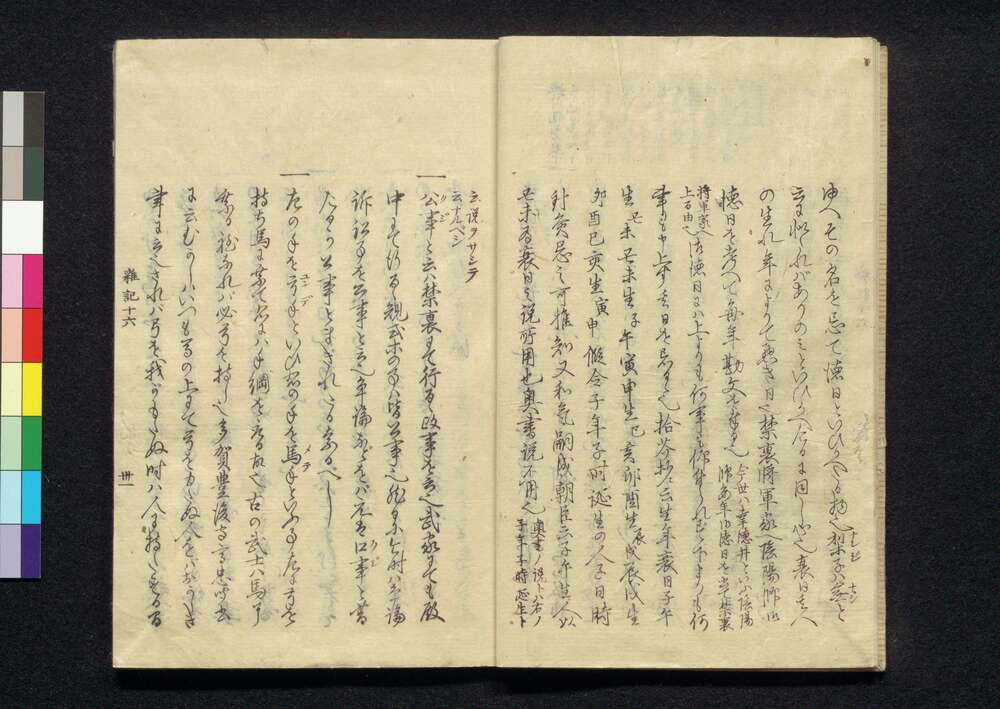 申へその名を忌て徳日といひかへたる物也梨子ハなしと
云に似たれバありのミといひかへたるに同し心也衰日ハ人
の生れ年によりて悪き日也禁裏将軍家へ陰陽師
徳日を考へて毎年勘文を奉る也今世ハ幸徳井と云陰陽
師毎年御徳日を考て禁裏
将軍家へ
上る由也 御徳日にハ上よりも何事も仰出されず下よりも何
事も申上ず其日を忌る也拾芥抄ニ云生年衰日子午
生丑未丑未生子午寅申生巳亥卯酉生辰戌辰戌生
卯酉巳亥生寅申假令子年子時誕生の人子日時
針灸忌之可推知又和氣嗣成朝臣云子午生人以
丑未為衰日之説所用也奥書説不用也奥書ノ説トハ右ノ
子年子時誕生ト
云説ヲサシテ
云ナルベシ
一 公事と云ハ禁裏にて行るる政事を云也武家にても殿
中にて行るる規式等の事ハ皆公事也
訴訟事を公事と云也争論などをハ口事と昔
人々公事とまぎれたるなるべし
一 左の手を弓手といひ右の手を馬手といふ事左に弓を
持ち馬に乗て右にハ手綱を取る故也古の武士ハ馬に
乗る程なれバ必弓を持し也多賀豊後守高忠聞書
に云むかしハいつも馬の上にて弓をもたぬ人をハおかしき
事に云也されバ弓を我がもたぬ時ハ人に持たする
雑記十六
卅一